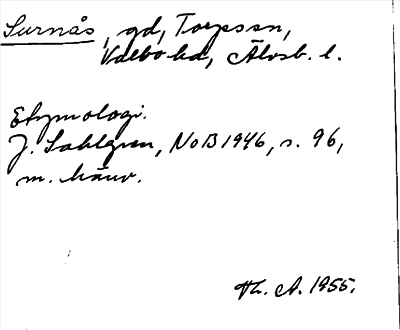 Surnås, gd, Torpssn,
Valbo hd, Älvsb. l.
Etymologi.
J. Sahlgren, NoB 1946, s. 96,
m. hänv.
Th. A. 1955.